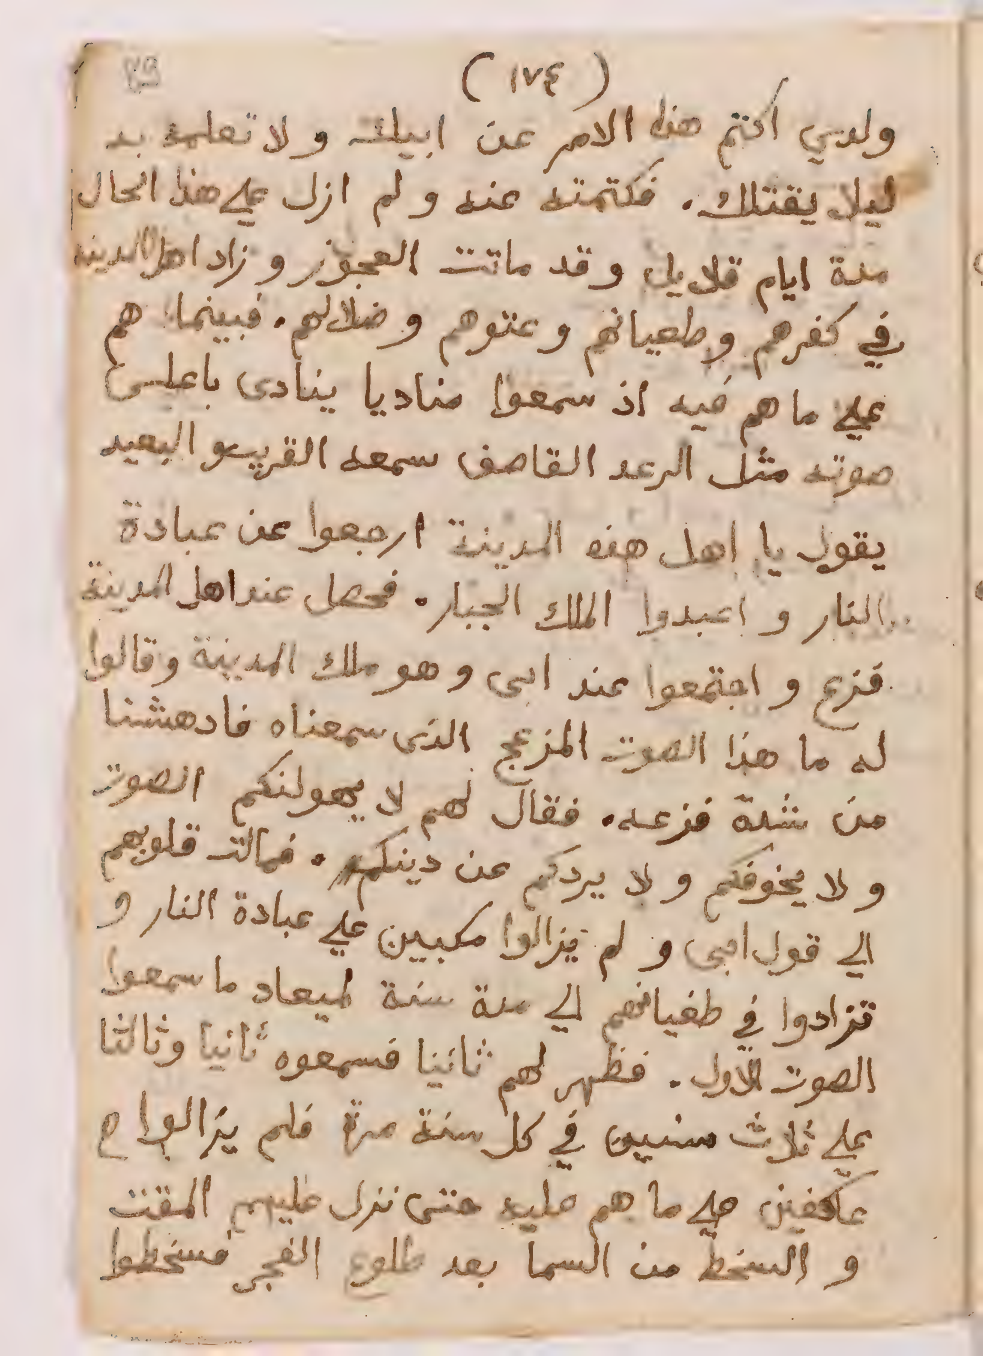 (١٧٤)
ولدي اكتم هذا الامر عن ابيك ولا تعلمه به
ليلا يقتلك. فكتمته عنه ولم ازل علي هذا الحال
مدة ايام قلايل وقد ماتت العجوز وزاد اهل المدينه
في كفرهم وطعيانهم وعتوهم وضلالهم. فبينما هم
علي ما هم فيه اذ سمعوا مناديا ينادى باعلى
صوته مثل الرعد القاصف سمعه القريب والبعيد
يقول يا اهل هذه المدينة ارجعوا عن عبادة
النار و اعبدوا الملك الجبار. فحصل عند اهل المدينة
فزع و اجتمعوا عند ابى و هو ملك المدينة وقالوا
له ما هذا الصوت المزعج الذى سمعناه فادهشنا
من شدة فزعه. فقال لهم لا يهولنكم الصوت
و لا يخوفكم و لا يردكم عن دينكم. فمالت قلوبهم
الي قول ابى و لم يزالوا مكبين علي عبادة النار و
تزادوا في طغيانهم الي مدة سنة لميعاد ما سمعوا
الصوت الاول. فظهر لهم ثانيا فسمعوه ثانيا وثالثا
علي ثلاث سنين في كل سنة مرة فلم يزالوا
عاكفين علي ما هم عليه حتى نزل عليهم المقت
و السخط من السما بعد طلوع الفجر فسخطوا